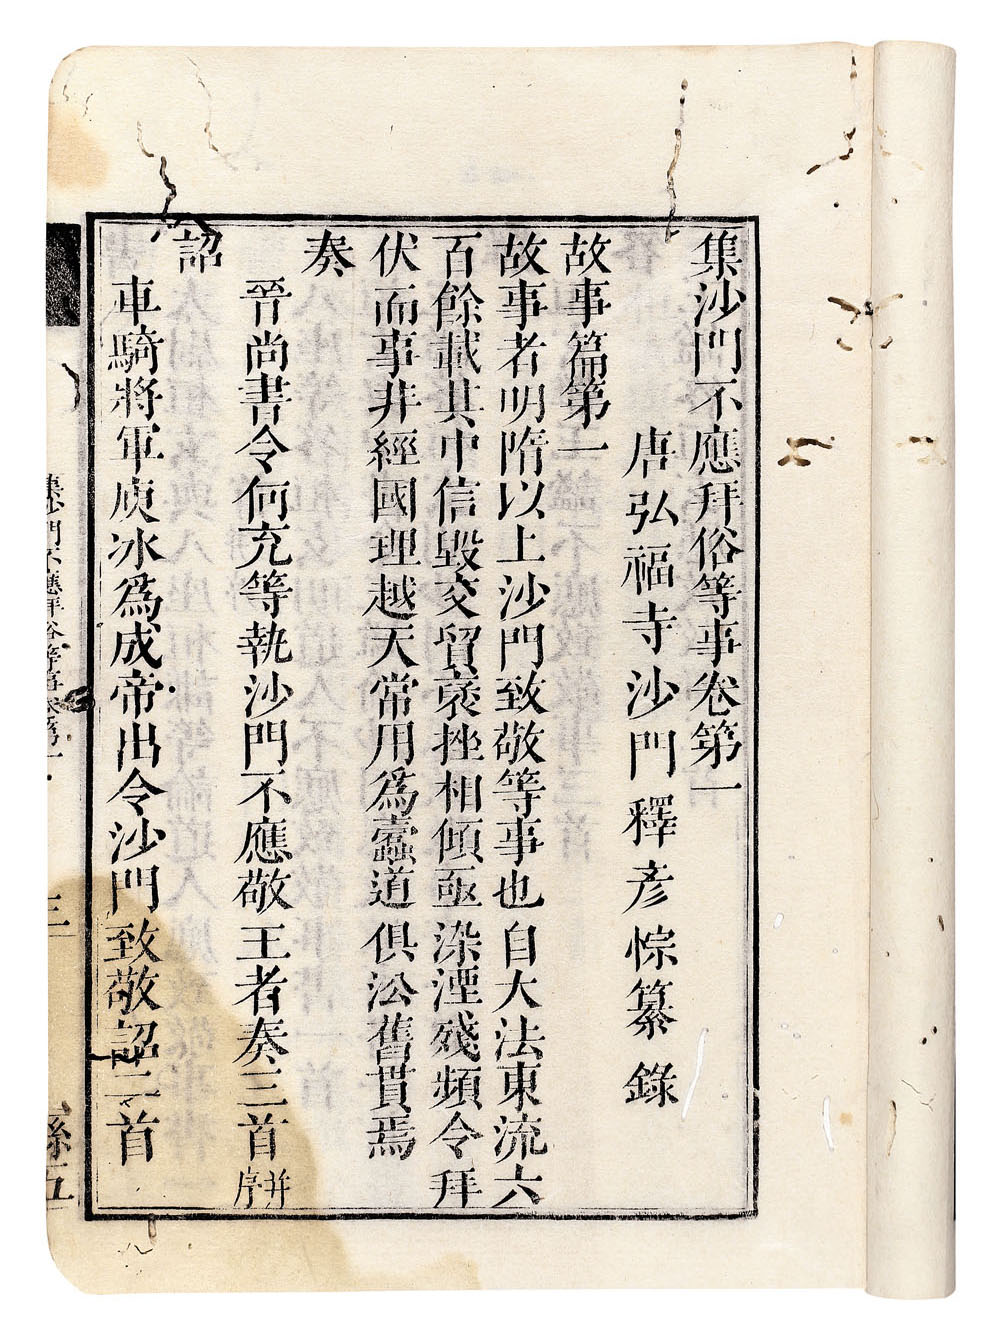 集沙門不應拜俗等事卷第一
唐弘福寺沙門 釋彥悰纂錄
故事篇第一
故事者明隋以上沙門致敬等事也自大法東流六
百餘載其中信毀交貿褒挫相傾亟染湮殘頻令拜
伏而事非經國理越天常用爲蠧道俱㳂舊貫焉
奏
晉尚書令何充等執沙門不應敬王者奏三首并序
詔
車騎將軍庾冰爲成帝出令沙門致敬詔二首
集沙門不應拜俗等事卷第一
三
縣五